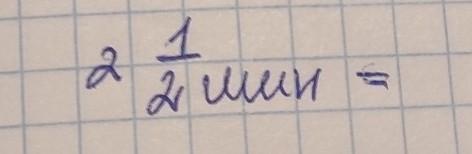 2 1/2 мин =